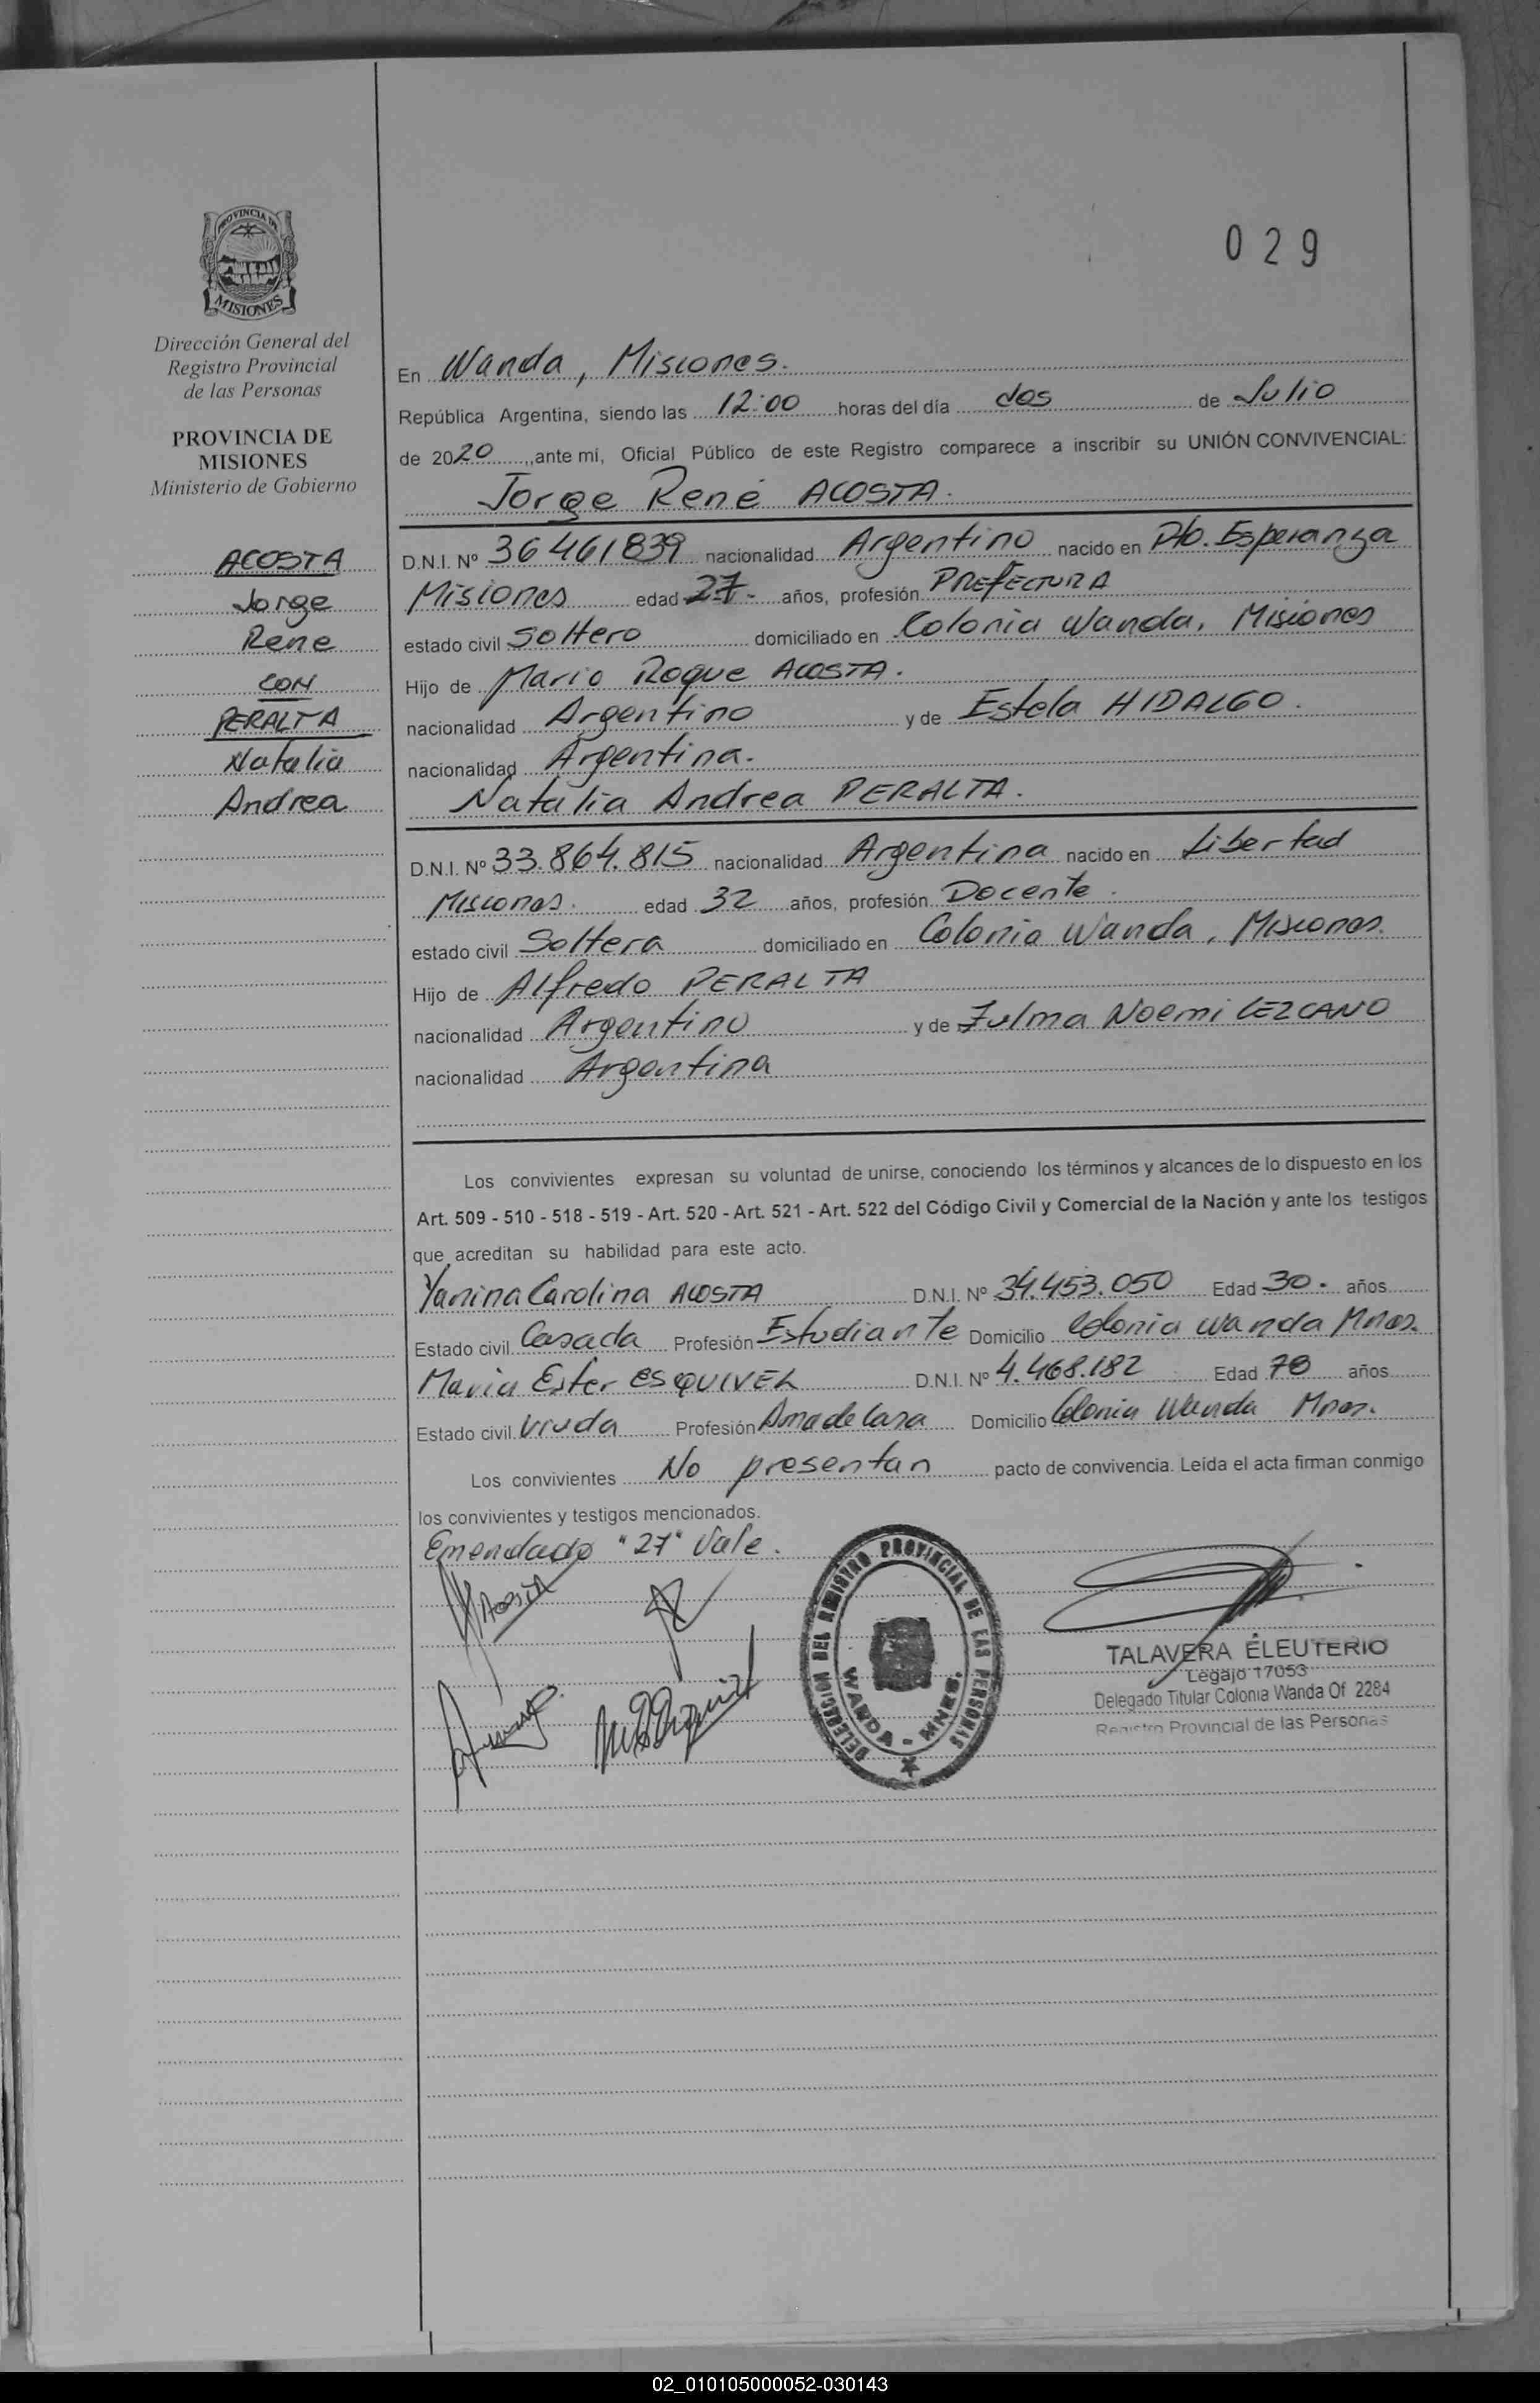 029
PROVINCIA DE
MISIONES
Dirección General del
Registro Provincial
de las Personas
PROVINCIA DE
MISIONES
Ministerio de Gobierno
ACOSTA
Jorge
Rene
CON
PERALTA
Natalia
Andrea
En Wanda, Misiones.
República Argentina, siendo las 12:00 horas del día dos de Julio
de 2020, ante mi, Oficial Público de este Registro comparece a inscribir su UNIÓN CONVIVENCIAL:
Jorge René ACOSTA.
D.N.I. Nº 36461839 nacionalidad Argentino nacido en Pto. Esperanza
Misiones edad 27- años, profesión PREFECTURA
estado civil Soltero domiciliado en Colonia Wanda, Misiones
Hijo de Mario Roque ACOSTA.
nacionalidad Argentino y de Estela HIDALGO.
nacionalidad Argentina.
Natalia Andrea PERALTA.
D.N.I. Nº 33.864.815 nacionalidad Argentina nacido en Libertad
Misiones. edad 32 años, profesión Docente.
estado civil Soltera domiciliado en Colonia Wanda, Misiones.
Hijo de Alfredo PERALTA
nacionalidad Argentino y de Zulma Noemi LEZCANO
nacionalidad Argentina
Los convivientes expresan su voluntad de unirse, conociendo los términos y alcances de lo dispuesto en los
Art. 509 - 510 - 518 - 519 - Art. 520 - Art. 521 - Art. 522 del Código Civil y Comercial de la Nación y ante los testigos
que acreditan su habilidad para este acto.
Yanina Carolina ACOSTA D.N.I. Nº 34.453.050 Edad 30- años
Estado civil Casada Profesión Estudiante Domicilio Colonia Wanda Mnes.
Maria Ester ESQUIVEL D.N.I. Nº 4.468.182 Edad 78 años
Estado civil Viuda Profesión Ama de Casa Domicilio Colonia Wanda Mnes.
Los convivientes No presentan pacto de convivencia. Leída el acta firman conmigo
los convivientes y testigos mencionados.
Emendado "27" Vale.
DELEGACION DEL REGISTRO PROVINCIAL DE LAS PERSONAS
WANDA - MNES.
TALAVERA ELEUTERIO
Legajo 17053
Delegado Titular Colonia Wanda Of 2284
Registro Provincial de las Personas
02_010105000052-030143